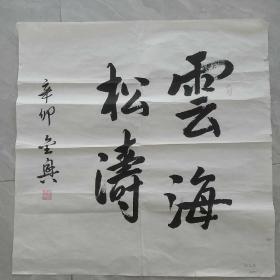 雲海
松濤
辛卯 金興